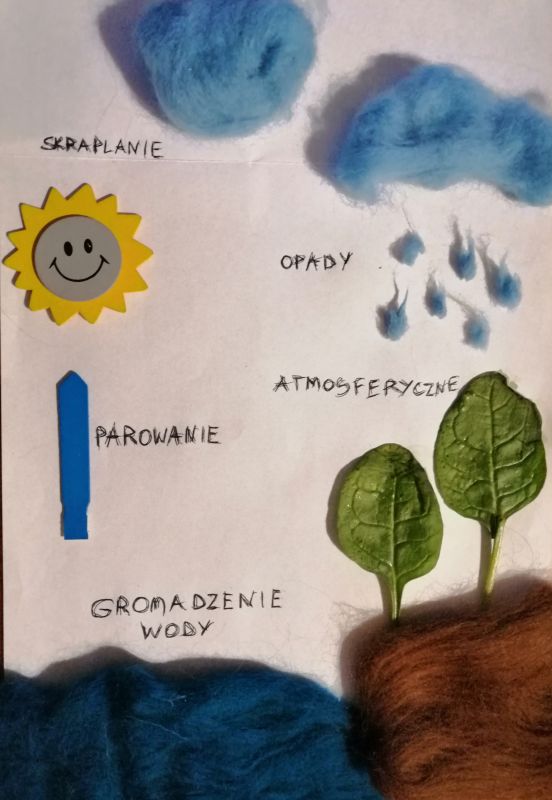 SKRAPLANIE
OPADY
ATMOSFERYCZNE
PAROWANIE
GROMADZENIE
WODY